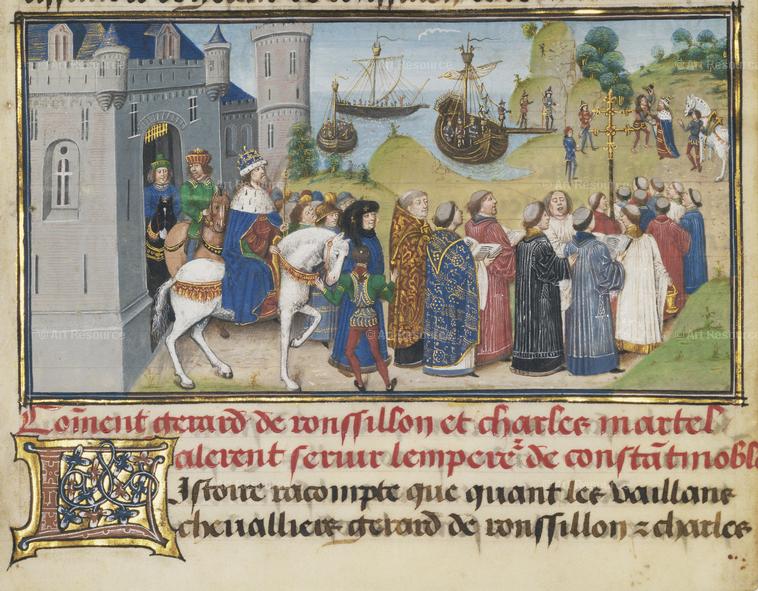 Com̃ent gerard de ronssillon et charles martel
alerent seruir lemperer̃ de constãtinoble
LIstoire racompte que quant les vaillans
cheualliers gerard de ronssillon ⁊ charles
© Art Resource